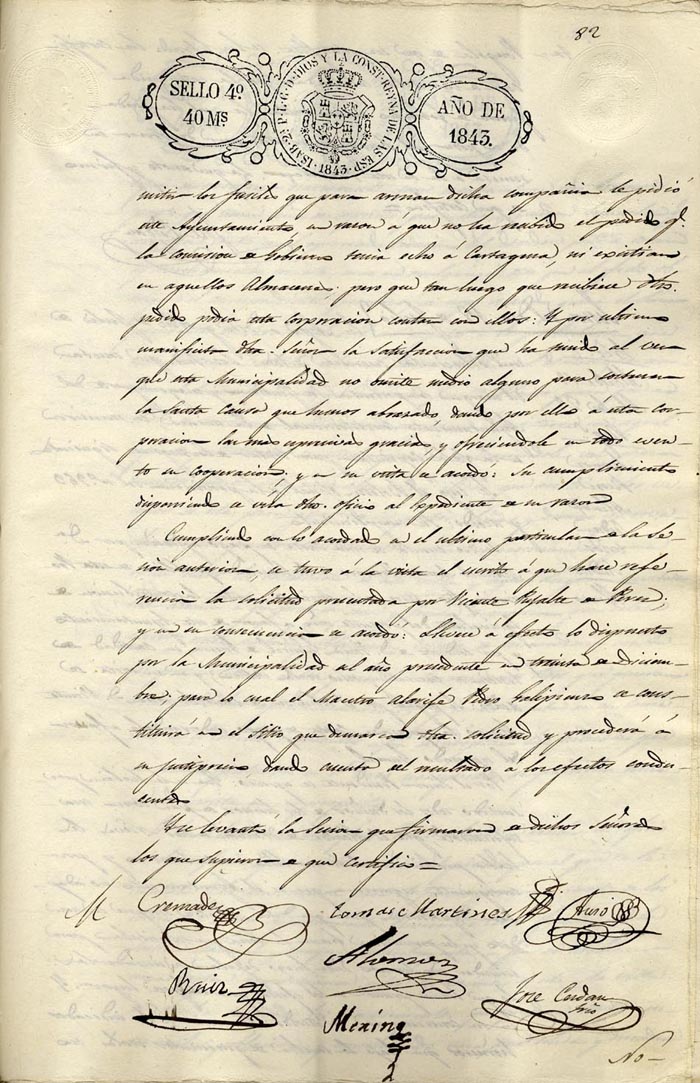 82
SELLO 4º
40 Ms
ISAB. 2ª P. L. G. D. DIOS Y LA CONST. REYNA DE LAS ESP. 1843.
AÑO DE
1843.
mitir los fusiles que para armar dicha compañia le pidió
este Ayuntamiento, en razon á que no ha recibido el pedido qe.
la comision de Gobierno tenia echo á Cartagena, ni existian
en aquellos Almacenes; pero que tan luego que recibiese dho.
pedido podia esta corporacion contar con ellos: Y por ultimo
manifiesta dho. Señor la satisfaccion que ha tenido al ver
que esta Municipalidad no omite medio alguno para sostener
la Santa Causa que hemos abrazado, dando por ello á esta cor-
poracion las mas espresivas gracias, y ofreciendole en todo even-
to su cooperacion; y en su vista se acordó: Su cumplimiento
disponiendo se una dho. oficio al Espediente de su razon
Cumpliendo con lo acordado en el ultimo particular de la Se-
sion anterior, se tuvo á la vista el escrito á que hace refe-
rencia la solicitud presentada por Vicente de Perez;
y en su consecuencia se acordó: Llevese á efecto lo dispuesto
por la Municipalidad del año precedente en treinta de Diciem-
bre; para lo cual el Maestro Alarife Pedro Galipienzo se cons-
tituirá en el Sitio que demarca dha. solicitud y procederá á
su justiprecio dando cuenta del resultado a los efectos condu-
centes
Y se levantó la Sesion que firmaron de dichos Señores
los que supieron de que certifico=
Cremades
Tomas Martines
Ruiz
Jose Cerdan
Srio
No-